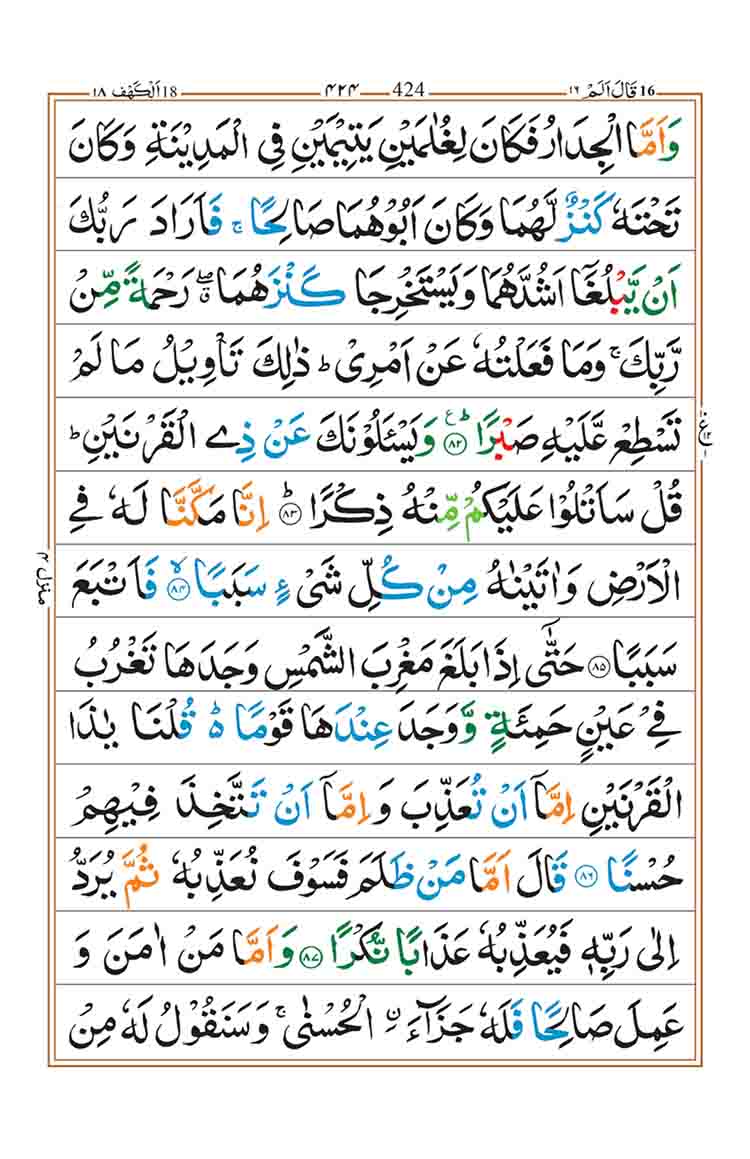 16 قَالَ اَلَمْ ١٦ 424 ٤٢٤ 18 اَلْكَهْف ١٨
وَاَمَّا الْجِدَارُ فَكَانَ لِغُلٰمَيْنِ يَتِيْمَيْنِ فِي الْمَدِيْنَةِ وَكَانَ
تَحْتَهٗ كَنْزٌ لَّهُمَا وَكَانَ اَبُوْهُمَا صَالِحًا ۚ فَاَرَادَ رَبُّكَ
اَنْ يَّبْلُغَاۤ اَشُدَّهُمَا وَيَسْتَخْرِجَا كَنْزَهُمَا ۖۗ رَحْمَةً مِّنْ
رَّبِّكَ ۚ وَمَا فَعَلْتُهٗ عَنْ اَمْرِیْ ؕ ذٰلِكَ تَاْوِيْلُ مَا لَمْ
تَسْطِعْ عَّلَيْهِ صَبْرًا ؕ ع ﴿٨٢﴾ وَيَسْـَٔلُوْنَكَ عَنْ ذِے الْقَرْنَيْنِ ؕ
قُلْ سَاَتْلُوْا عَلَيْكُمْ مِّنْهُ ذِكْرًا ؕ ﴿٨٣﴾ اِنَّا مَكَّنَّا لَهٗ فِے
الْاَرْضِ وَاٰتَيْنٰهُ مِنْ كُلِّ شَیْءٍ سَبَبًا ۙ ﴿٨٤﴾ فَاَتْبَعَ
سَبَبًا ﴿٨٥﴾ حَتّٰۤی اِذَا بَلَغَ مَغْرِبَ الشَّمْسِ وَجَدَهَا تَغْرُبُ
فِیْ عَيْنٍ حَمِئَةٍ وَّوَجَدَ عِنْدَهَا قَوْمًا ؕ۬ قُلْنَا يٰذَا
الْقَرْنَيْنِ اِمَّاۤ اَنْ تُعَذِّبَ وَاِمَّاۤ اَنْ تَتَّخِذَ فِيْهِمْ
حُسْنًا ﴿٨٦﴾ قَالَ اَمَّا مَنْ ظَلَمَ فَسَوْفَ نُعَذِّبُهٗ ثُمَّ يُرَدُّ
اِلٰی رَبِّهٖ فَيُعَذِّبُهٗ عَذَابًا نُّكْرًا ﴿٨٧﴾ وَاَمَّا مَنْ اٰمَنَ وَ
عَمِلَ صَالِحًا فَلَهٗ جَزَآءَ ۨ الْحُسْنٰی ۚ وَسَنَقُوْلُ لَهٗ مِنْ
منزل ٤